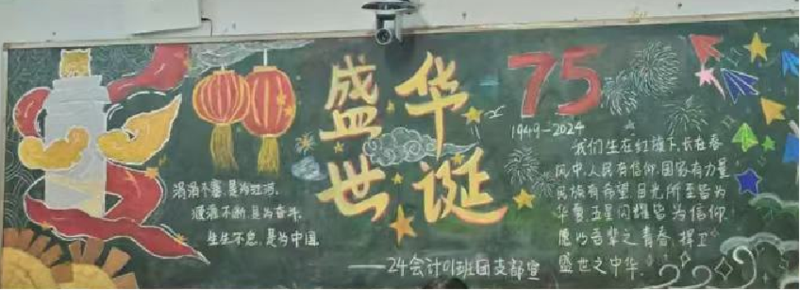 涓滴不塞,是为江河,
涟漪不断,是为奋斗,
生生不息,是为中国
盛世
华诞
75
1949-2024
我们生在红旗下,长在春
风中,人民有信仰,国家有力量
民族有希望,目光所至皆为
华夏,五星闪耀皆为信仰
愿以吾辈之青春,捍卫
盛世之中华.
——24会计01班团支部宣